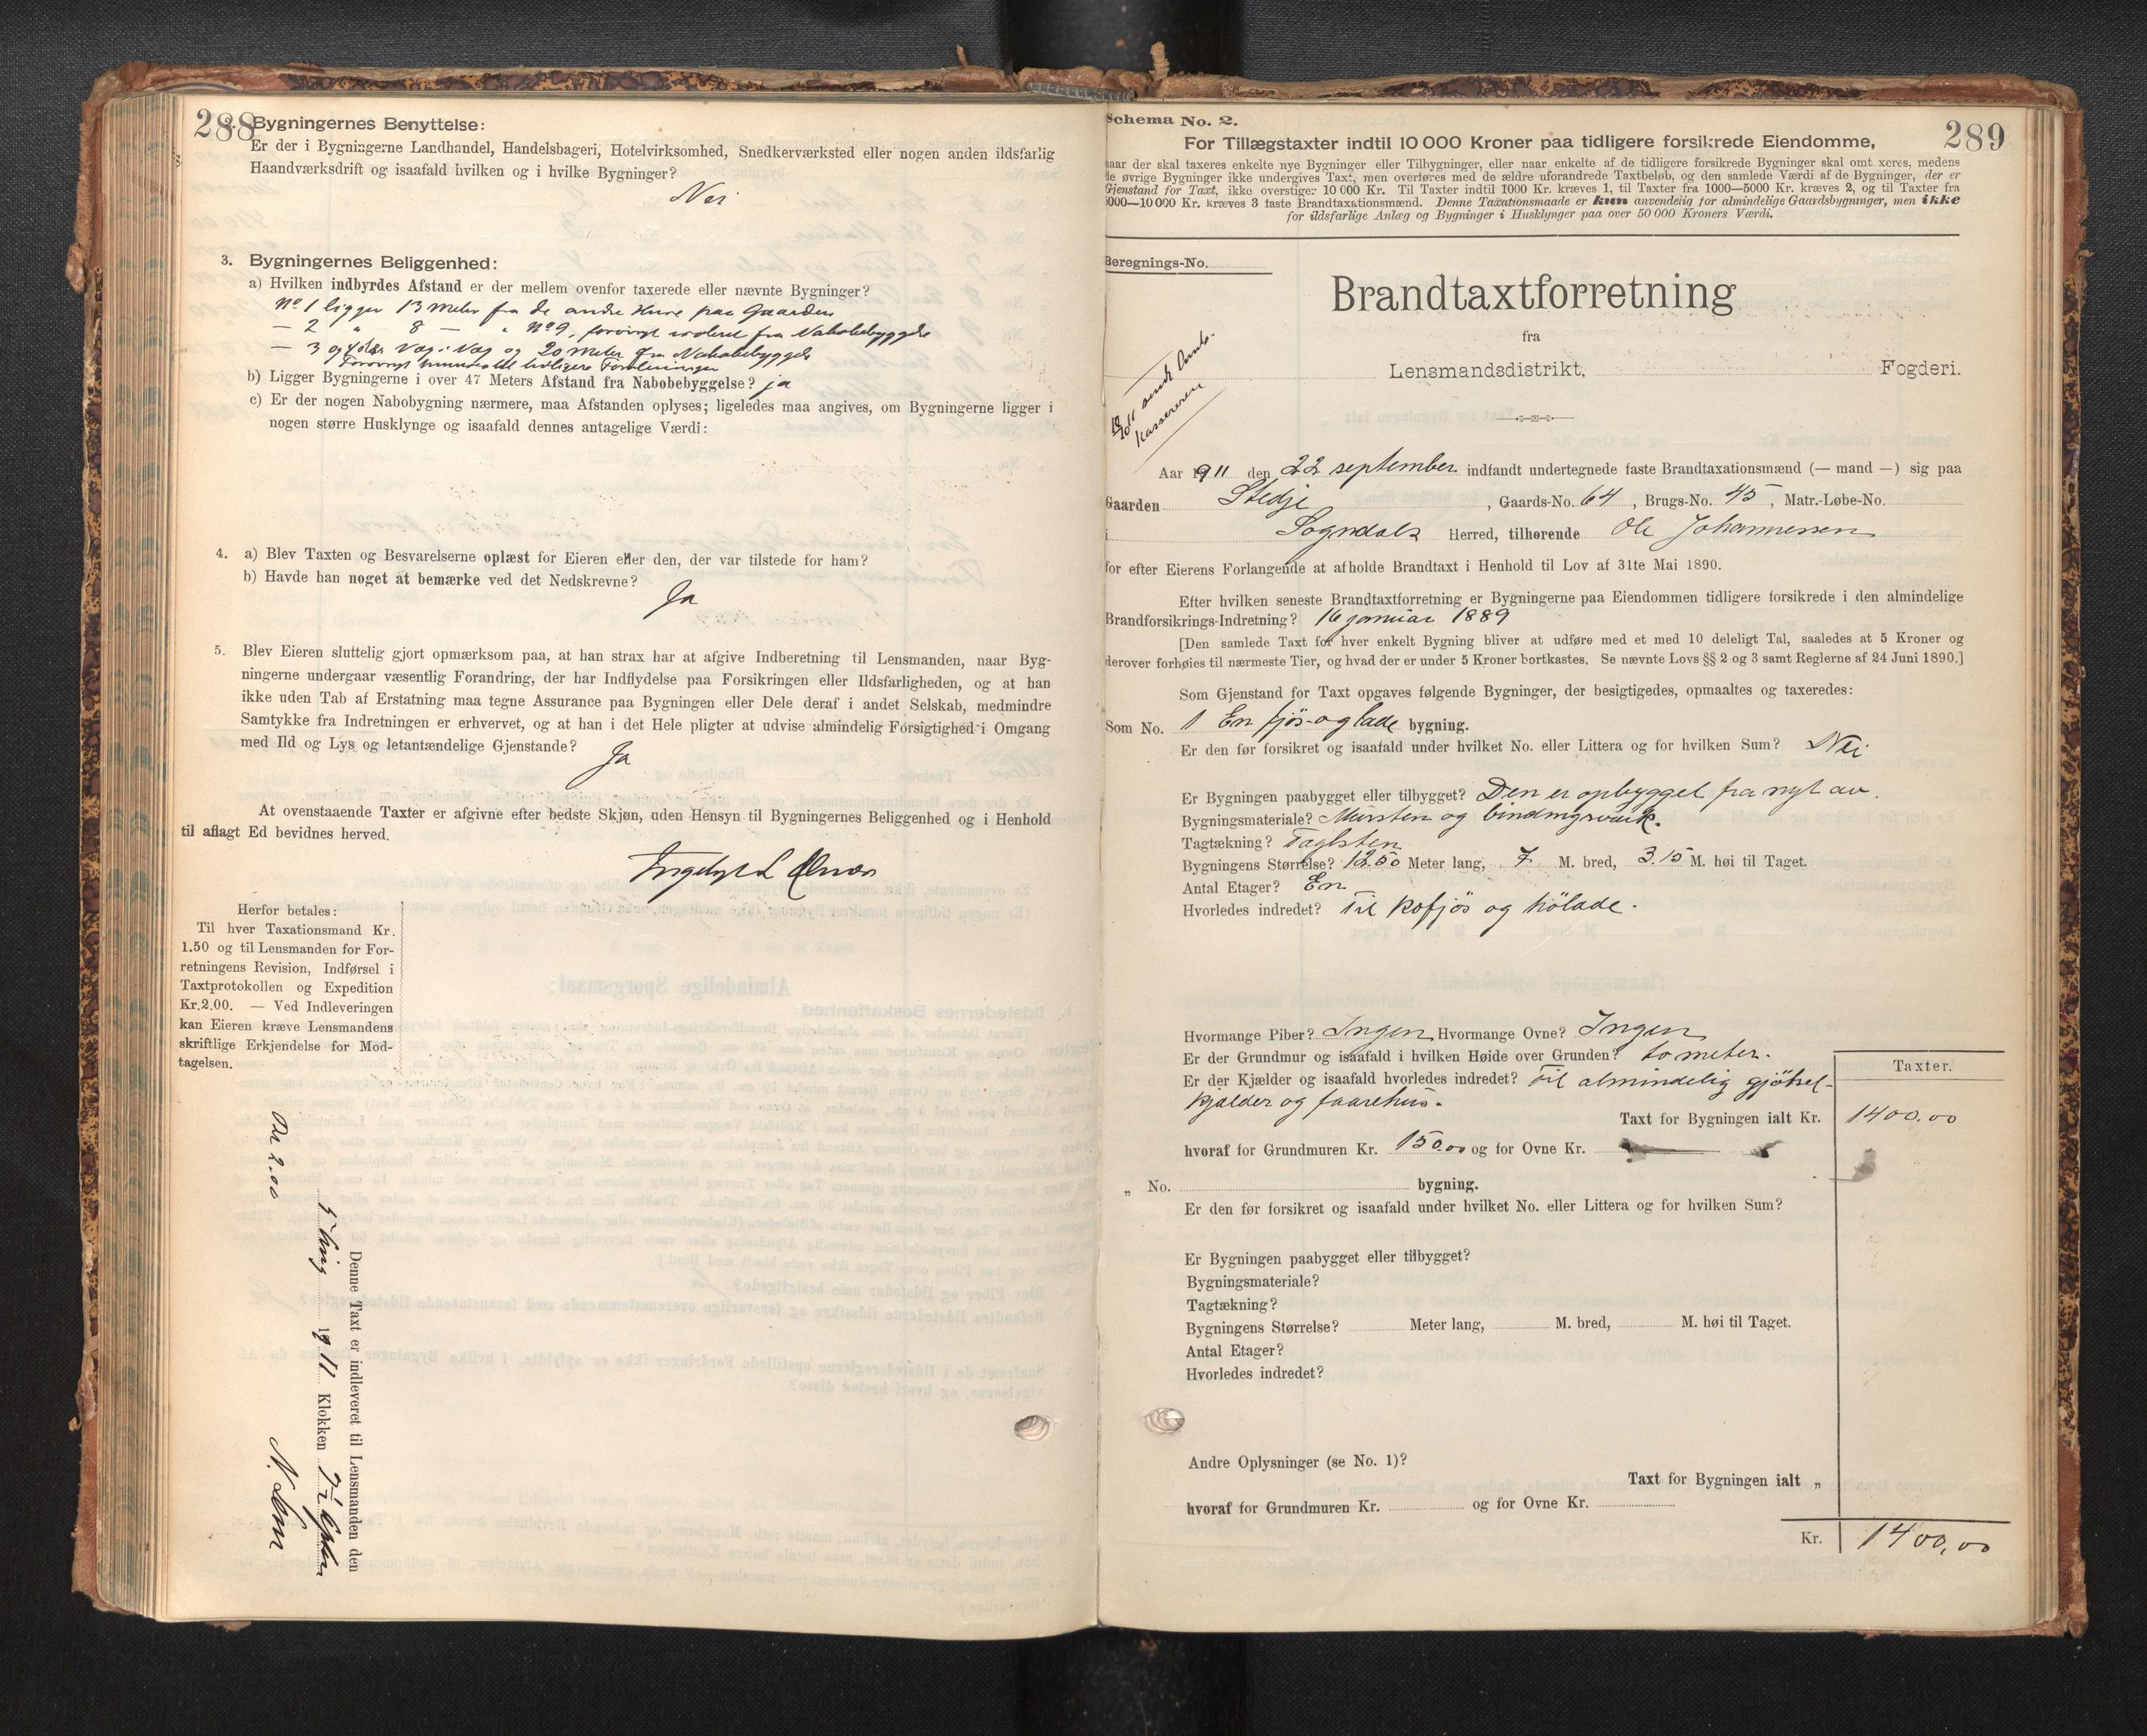 288
2. Bygningernes Benyttelse:
Er der i Bygningerne Landhandel, Handelsbageri, Hotelvirksomhed, Snedkerværksted eller nogen anden ildsfarlig
Haandværksdrift og isaafald hvilken og i hvilke Bygninger?
Nei
3. Bygningernes Beliggenhed:
a) Hvilken indbyrdes Afstand er der mellem ovenfor taxerede eller nævnte Bygninger?
No 1 ligger 13 Meter fra de andre Huse paa Gaarden
— 2 " 8 — " No 9, forøvrigt isoleret fra Nabobebyggelse
— 3 og 4 staar Væg i Væg og 20 Meter fra Nabobebyggelse
Forøvrigt henvises til tidligere Forretninger
b) Ligger Bygningerne i over 47 Meters Afstand fra Nabobebyggelse? ja
c) Er der nogen Nabobygning nærmere, maa Afstanden oplyses; ligeledes maa angives, om Bygningerne ligger i
nogen større Husklynge og isaafald dennes antagelige Værdi:
4. a) Blev Taxten og Besvarelserne oplæst for Eieren eller den, der var tilstede for ham?
b) Havde han noget at bemærke ved det Nedskrevne?
Ja
5. Blev Eieren sluttelig gjort opmærksom paa, at han strax har at afgive Indberetning til Lensmanden, naar Byg-
ningerne undergaar væsentlig Forandring, der har Indflydelse paa Forsikringen eller Ildsfarligheden, og at han
ikke uden Tab af Erstatning maa tegne Assurance paa Bygningen eller Dele deraf i andet Selskab, medmindre
Samtykke fra Indretningen er erhvervet, og at han i det Hele pligter at udvise almindelig Forsigtighed i Omgang
med Ild og Lys og letantændelige Gjenstande? Ja
At ovenstaaende Taxter er afgivne efter bedste Skjøn, uden Hensyn til Bygningernes Beliggenhed og i Henhold
til aflagt Ed bevidnes herved.
Herfor betales:
Til hver Taxationsmand Kr.
1.50 og til Lensmanden for For-
retningens Revision, Indførsel i
Taxtprotokollen og Expedition
Kr.2.00. — Ved Indleveringen
kan Eieren kræve Lensmandens
skriftlige Erkjendelse for Mod-
tagelsen.
Denne Taxt er indleveret til Lensmanden den
1911 Klokken 7½
2.00
289
Schema No. 2.
For Tillægstaxter indtil 10 000 Kroner paa tidligere forsikrede Eiendomme,
naar der skal taxeres enkelte nye Bygninger eller Tilbygninger, eller naar enkelte af de tidligere forsikrede Bygninger skal omtaxeres, medens
de øvrige Bygninger ikke undergives Taxt, men overføres med de ældre uforandrede Taxtbeløb, og den samlede Værdi af de Bygninger, der er
Gjenstand for Taxt, ikke overstiger 10 000 Kr. Til Taxter indtil 1000 Kr. kræves 1, til Taxter fra 1000—5000 Kr. kræves 2, og til Taxter fra
5000—10 000 Kr. kræves 3 faste Brandtaxationsmænd. Denne Taxationsmaade er kun anvendelig for almindelige Gaardsbygninger, men ikke
for ildsfarlige Anlæg og Bygninger i Husklynger paa over 50 000 Kroners Værdi.
Beregnings-No.
Brandtaxtforretning
fra
Lensmandsdistrikt, Fogderi.
sendt Amts-
kassereren
Aar 1911 den 22 september indfandt undertegnede faste Brandtaxationsmænd (— mand —) sig paa
Gaarden Stedje, Gaards-No. 64, Brugs-No. 45, Matr.-Løbe-No.
i Sogndals Herred, tilhørende Ole Johannessen
for efter Eierens Forlangende at afholde Brandtaxt i Henhold til Lov af 31te Mai 1890.
Efter hvilken seneste Brandtaxtforretning er Bygningerne paa Eiendommen tidligere forsikrede i den almindelige
Brandforsikrings-Indretning? 16 januar 1889
[Den samlede Taxt for hver enkelt Bygning bliver at udføre med et med 10 deleligt Tal, saaledes at 5 Kroner og
derover forhøies til nærmeste Tier, og hvad der er under 5 Kroner bortkastes. Se nævnte Lovs §§ 2 og 3 samt Reglerne af 24 Juni 1890.]
Som Gjenstand for Taxt opgaves følgende Bygninger, der besigtigedes, opmaaltes og taxeredes:
Som No. 1 En fjös- og lade bygning.
Er den før forsikret og isaafald under hvilket No. eller Littera og for hvilken Sum? Nei
Er Bygningen paabygget eller tilbygget? Den er opbygget fra nyt av.
Bygningsmateriale? Mursten og bindingsværk.
Tagtækning? Taglsten
Bygningens Størrelse? 12.50 Meter lang, 7 M. bred, 3.15 M. høi til Taget.
Antal Etager? En
Hvorledes indredet? Til kofjös og hölade.
Hvormange Piber? Ingen Hvormange Ovne? Ingen
Er der Grundmur og isaafald i hvilken Høide over Grunden? to meter.
Er der Kjælder og isaafald hvorledes indredet? Til almindelig gjötsel-
kjælder og faarehus.
Taxter.
Taxt for Bygningen ialt Kr. 1400.00
hvoraf for Grundmuren Kr. 150.00 og for Ovne Kr.
„ No. bygning.
Er den før forsikret og isaafald under hvilket No. eller Littera og for hvilken Sum?
Er Bygningen paabygget eller tilbygget?
Bygningsmateriale?
Tagtækning?
Bygningens Størrelse? Meter lang, M. bred, M. høi til Taget.
Antal Etager?
Hvorledes indredet?
Andre Oplysninger (se No. 1)?
Taxt for Bygningen ialt „
hvoraf for Grundmuren Kr. og for Ovne Kr.
Kr. 1400,00